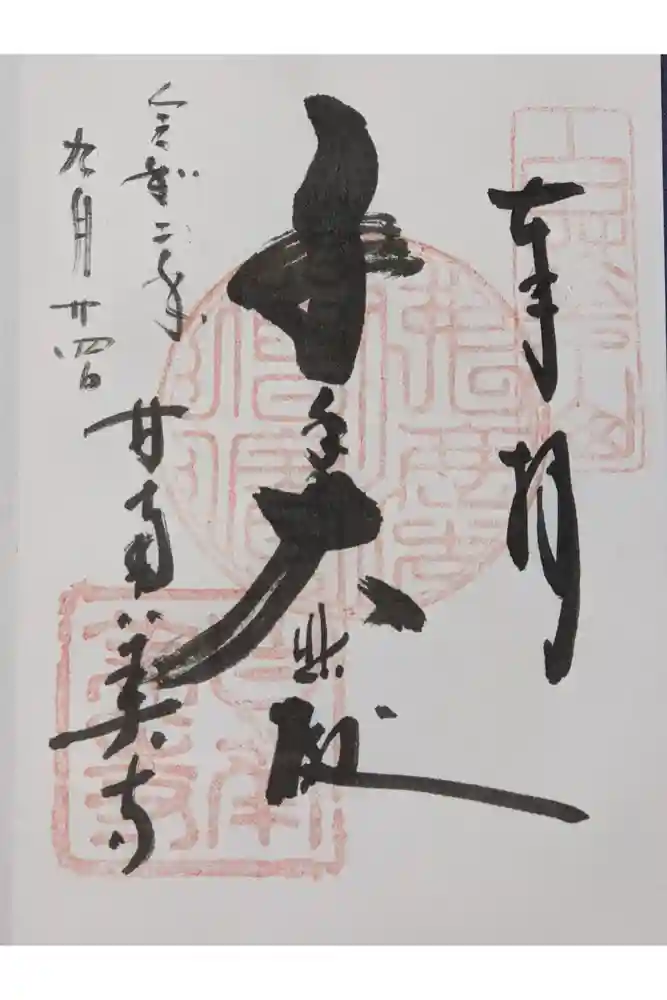 奉拝
千手大悲殿
令和二年
九月廿四日
甘南美寺